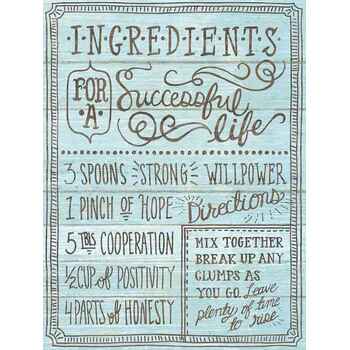 INGREDIENTS
FOR A
Successful
life
3 SPOONS STRONG WILLPOWER
1 PINCH of HOPE
5 TBS COOPERATION
½ CUP of POSITIVITY
4 PARTS of HONESTY
Directions
MIX TOGETHER
BREAK UP ANY
CLUMPS AS
YOU GO. Leave
plenty of time
to rise